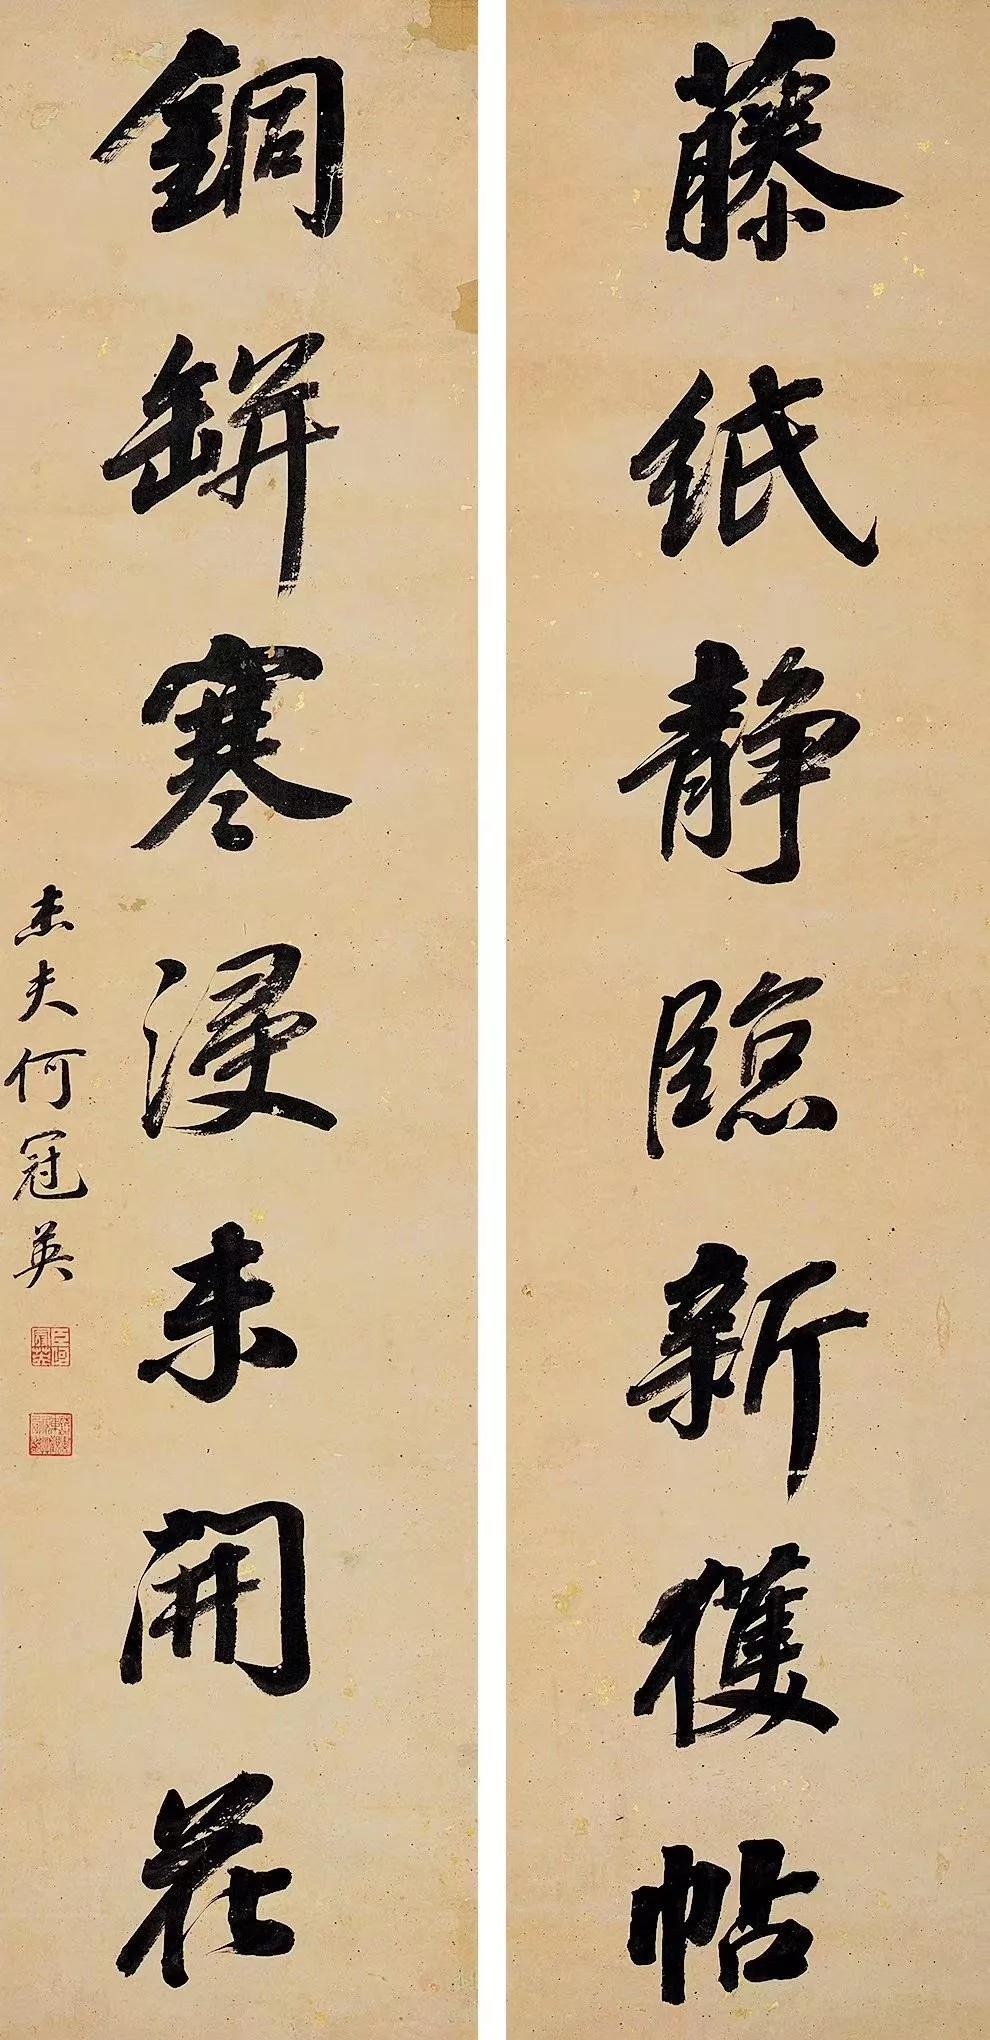 藤纸静臨新獲帖
銅缾寒浸未開花
杰夫何冠英